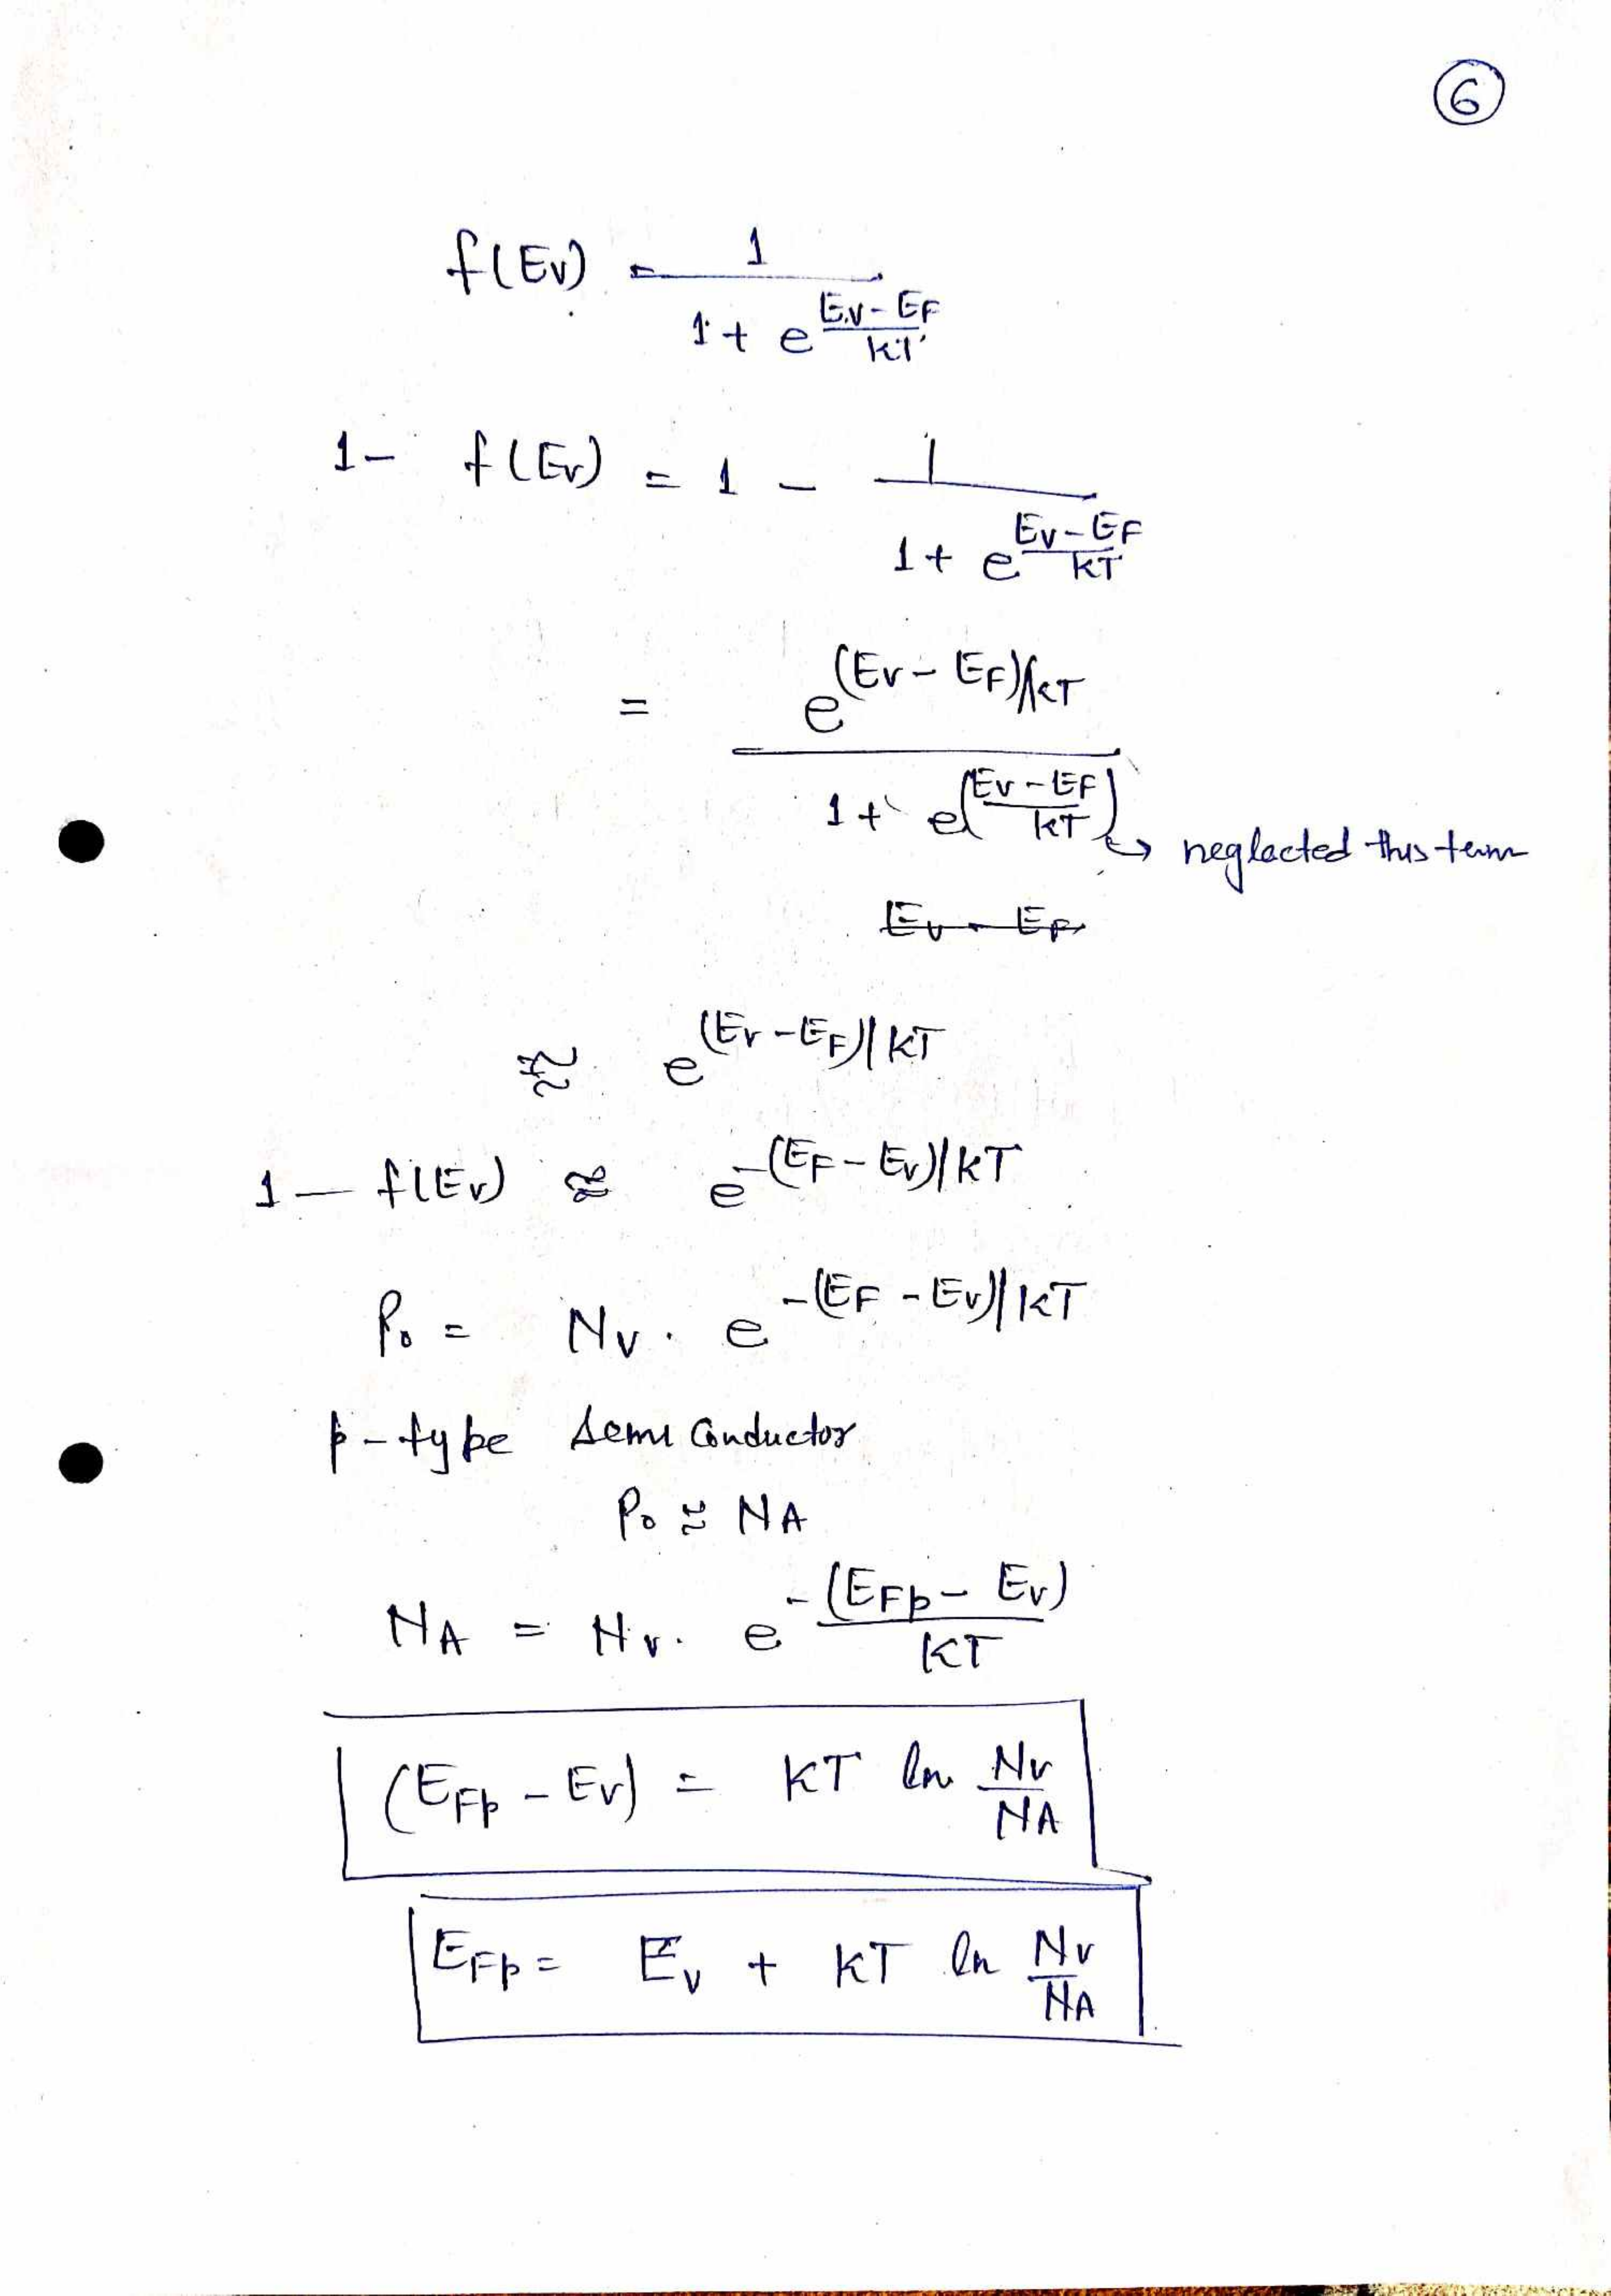 6
f(Ev) = 1 / (1 + e^((Ev - EF)/kT))
1 - f(Ev) = 1 - 1 / (1 + e^((Ev - EF)/kT))
= e^((Ev - EF)/kT) / (1 + e^((Ev - EF)/kT)) → neglacted this term
Ev - EF
≈ e^((Ev - EF)/kT)
1 - f(Ev) ≈ e^(-(EF - Ev)/kT)
Po = Nv . e^(-(EF - Ev)/kT)
p-type semi conductor
Po ≈ NA
NA = Nv . e^(-(EFp - Ev)/kT)
(EFp - Ev) = kT ln Nv/NA
EFp = Ev + kT ln Nv/NA